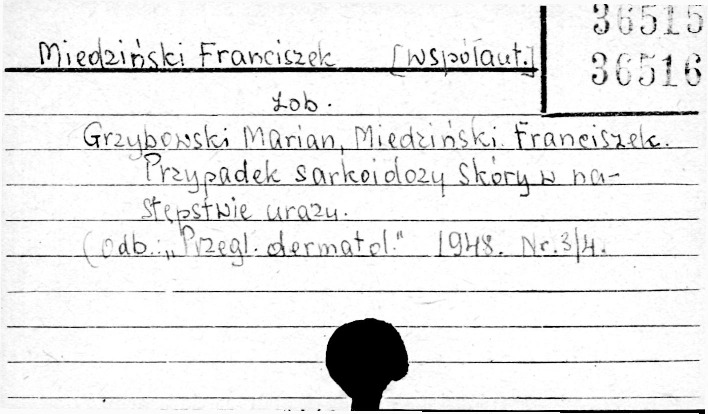 36515
Miedziński Franciszek [współaut.]
36516
zob.
Grzybowski Marian, Miedziński Franciszek.
Przypadek sarkoidozy skóry w na-
stępstwie urazu.
(odb.: „Przegl. dermatol." 1948. Nr. 3/4.